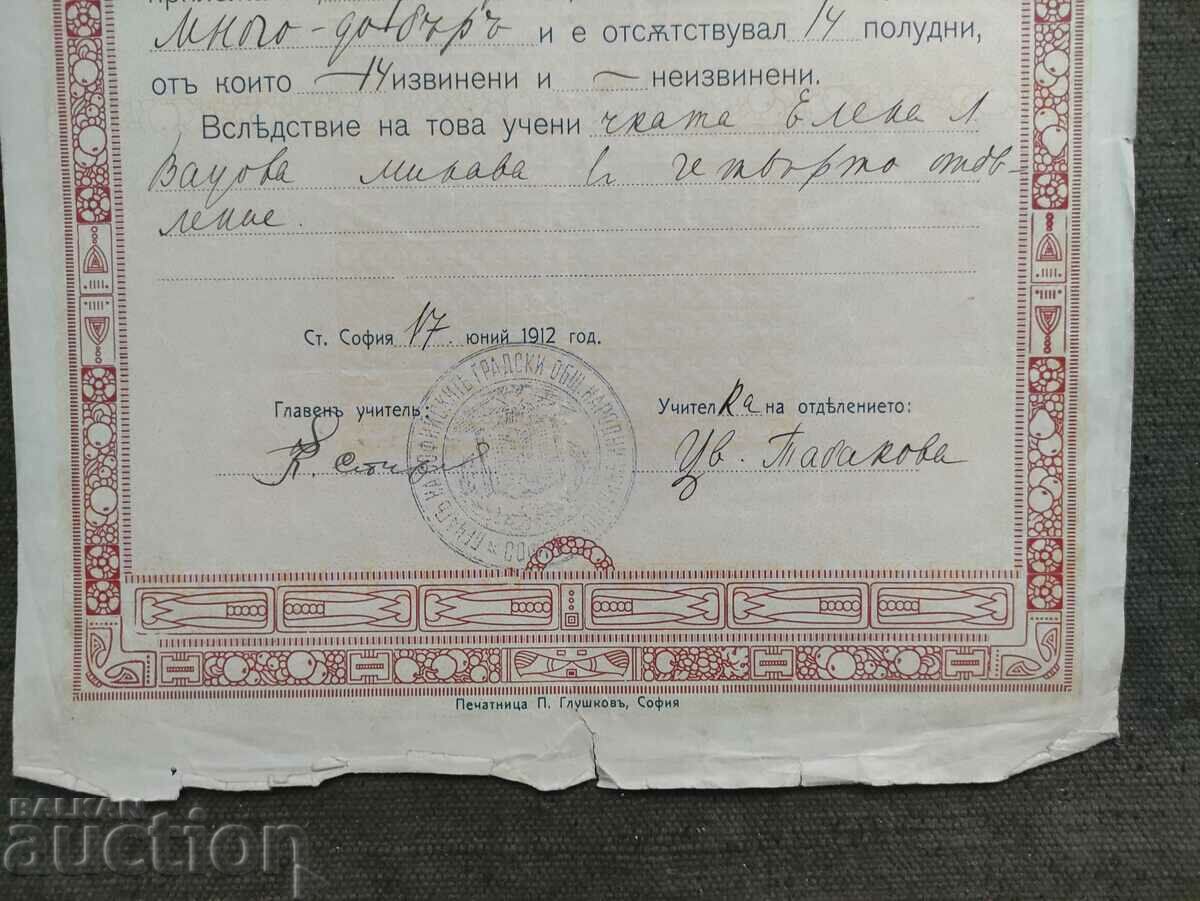 много-добъръ и е отсѫтствувал 14 полудни,
отъ които 14 извинени и — неизвинени.
Вслѣдствие на това учени чката Елена Л
Вацова минава в четвърто отдѣ-
ление.
Ст. София 17. юний 1912 год.
Главенъ учитель:
Учителка на отдѣлението:
К.
Цв. Табакова
ГРАДСКИ ОБЩ. НАРОДНИ
Печатница П. Глушковъ, София
BALKAN
auction